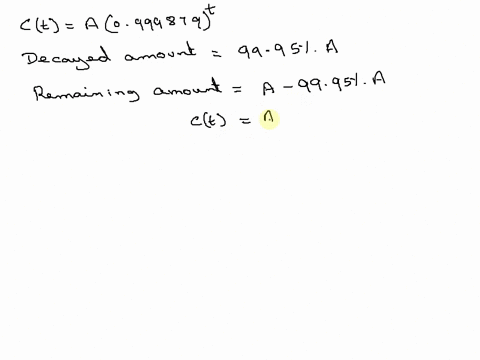 C(t) = A(0.999879)^t
Decayed amount = 99.95%. A
Remaining amount = A - 99.95%. A
C(t) = A